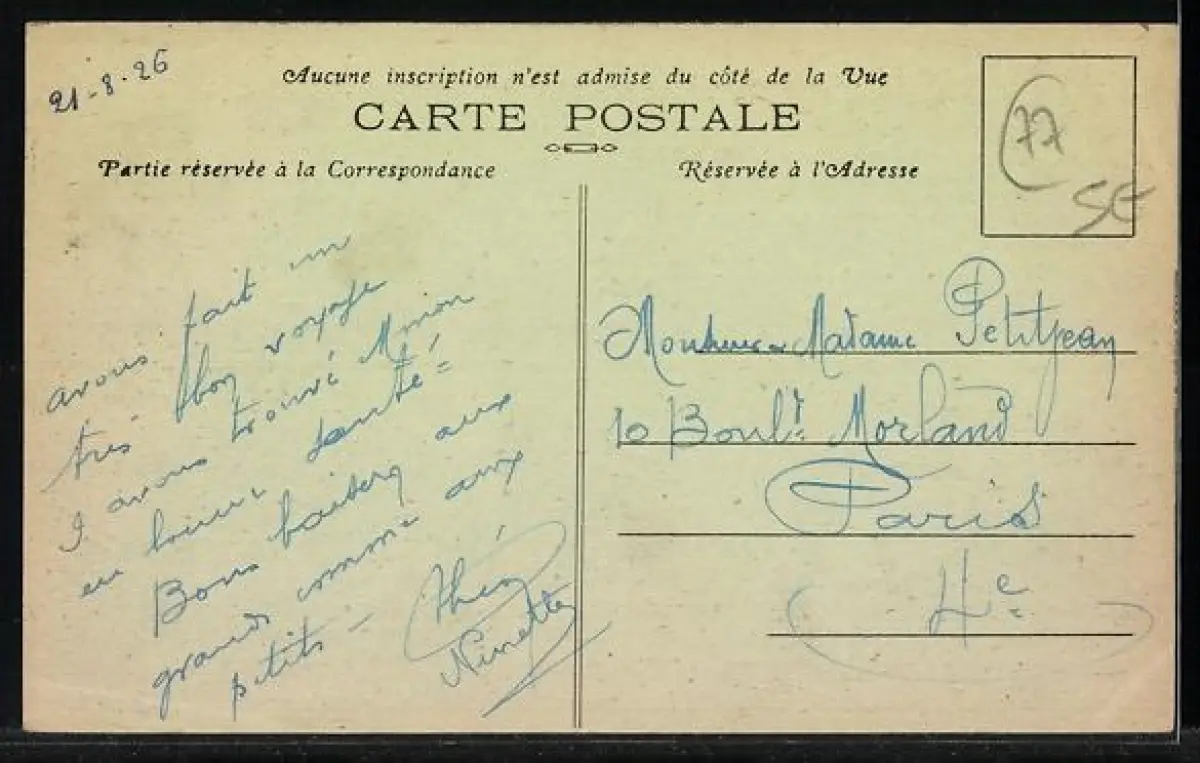 21-8-26
Aucune inscription n'est admise du côté de la Vue
CARTE POSTALE
Partie réservée à la Correspondance
Réservée à l'Adresse
77
SE
avons fait un
très bon voyage
trouvé
en bonne santé =
Bons baisers aux
grands comme aux
petits -
Ninette
Monsieur Madame Petitjean
10 Boul.d Morland
Paris
4e